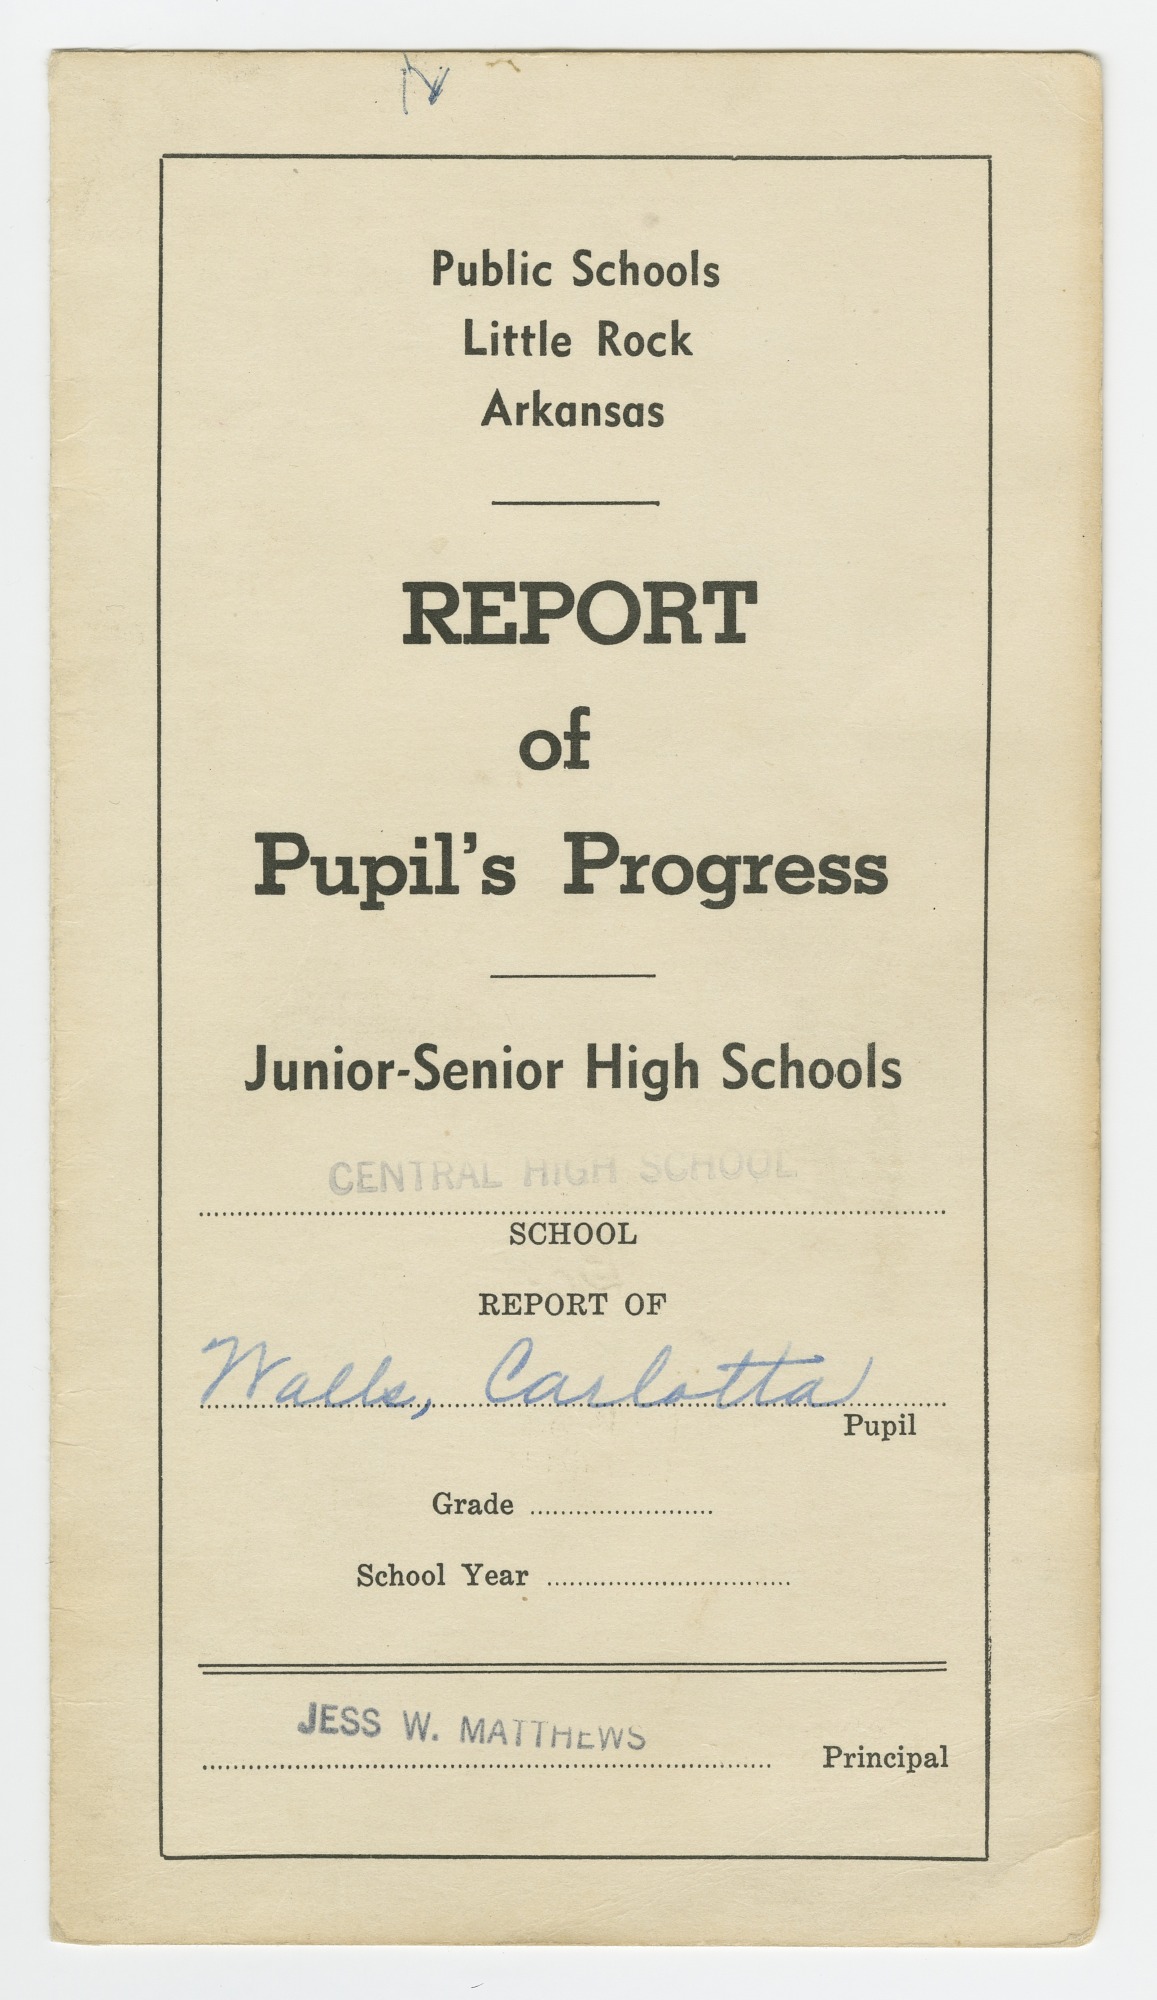 Public Schools
Little Rock
Arkansas
REPORT
of
Pupil's Progress
Junior-Senior High Schools
CENTRAL HIGH SCHOOL
SCHOOL
REPORT OF
Walls, Carlotta
Pupil
Grade
School Year
JESS W. MATTHEWS
Principal